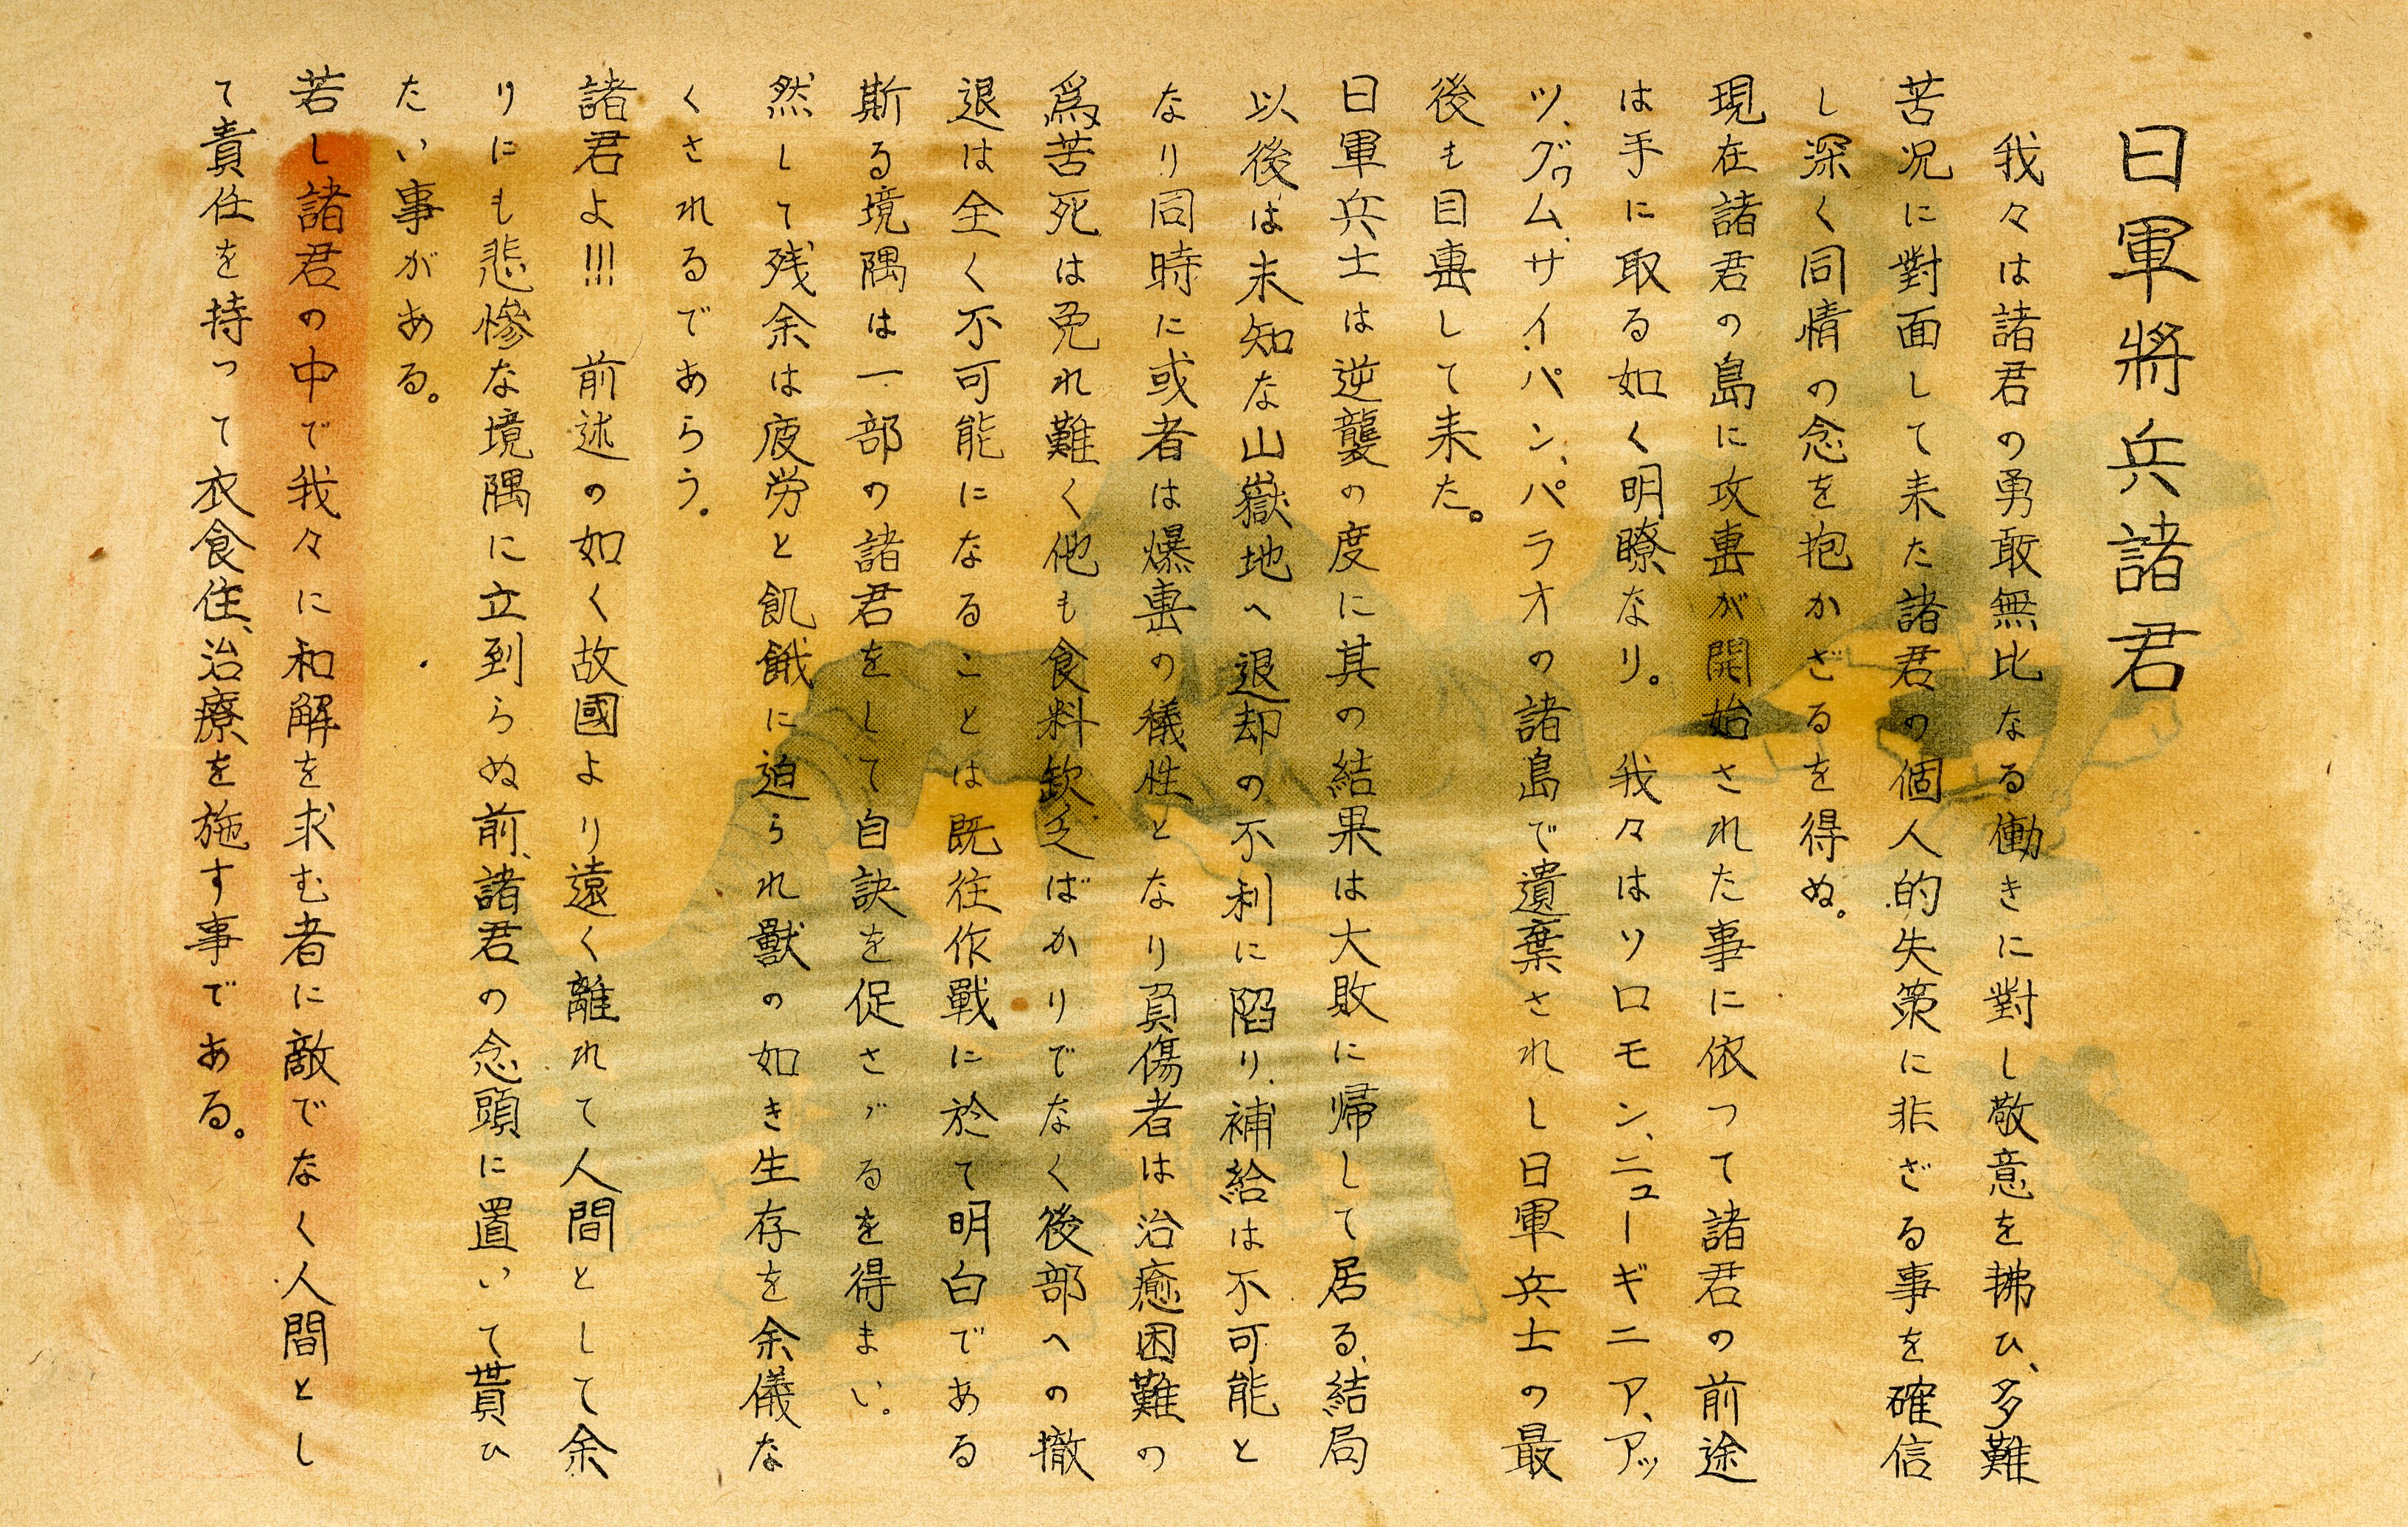 日軍將兵諸君
我々は諸君の勇敢無比なる働きに對し敬意を拂ひ、多難
苦况に對面して来た諸君の個人的失策に非ざる事を確信
し深く同情の念を抱かざるを得ぬ。
現在諸君の島に攻擊が開始された事に依って諸君の前途
は手に取る如く明瞭なり。我々はソロモン、ニューギニア、アッ
ツ、グヮム、サイパン、パラオの諸島で遺棄されし日軍兵士の最
後も目擊して来た。
日軍兵士は逆襲の度に其の結果は大敗に帰して居る、結局
以後は未知な山嶽地へ退却の不利に陷り、補給は不可能と
なり同時に或者は爆擊の犠牲となり負傷者は治癒困難の
爲苦死は免れ難く他も食料欽乏ばかりでなく後部への撤
退は全く不可能になることは既往作戰に於て明白である
斯る境隅は一部の諸君をして自訣を促さゞるを得まい。
然して残余は疲労と飢餓に迫られ獸の如き生存を余儀な
くされるであらう。
諸君よ!!! 前述の如く故國より遠く離れて人間として余
りにも悲慘な境隅に立到らぬ前、諸君の念頭に置いて貰ひ
たい事がある。
若し諸君の中で我々に和解を求む者に敵でなく人間とし
て責任を持って衣食住、治療を施す事である。